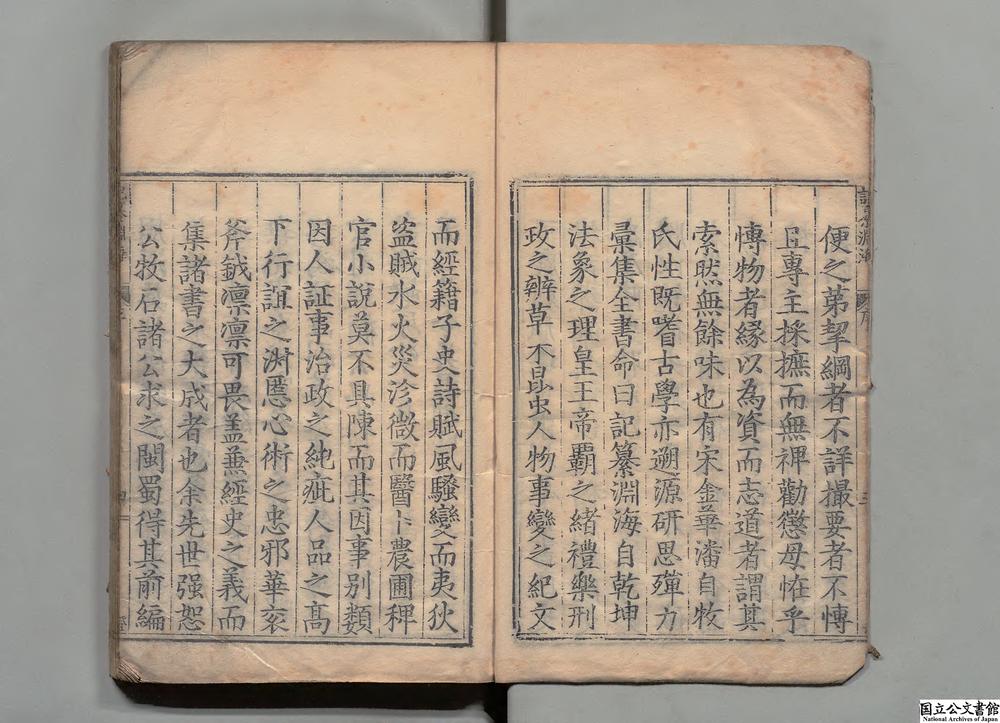 便之苐挈綱者不詳撮要者不愽
且專主採摭而無裨勸懲毋恠乎
愽物者緣以為資而志道者謂其
索然無餘味也有宋金華潘自牧
氏性旣嗜古學亦遡源研思殫力
彚集全書命曰記纂淵海自乾坤
法象之理皇王帝霸之緒禮樂刑
政之辨草木昆虫人物事變之紀文
而經籍子史詩賦風騷變而夷狄
盗賊水火災沴微而醫卜農圃稗
官小說莫不具陳而其因事別類
因人証事治政之純疵人品之髙
下行誼之淑慝心術之忠邪華衮
斧鉞凛凛可畏盖蕪經史之義而
集諸書之大成者也余先世强恕
公牧石諸公求之閩蜀得其前編
国立公文書館
National Archives of Japan